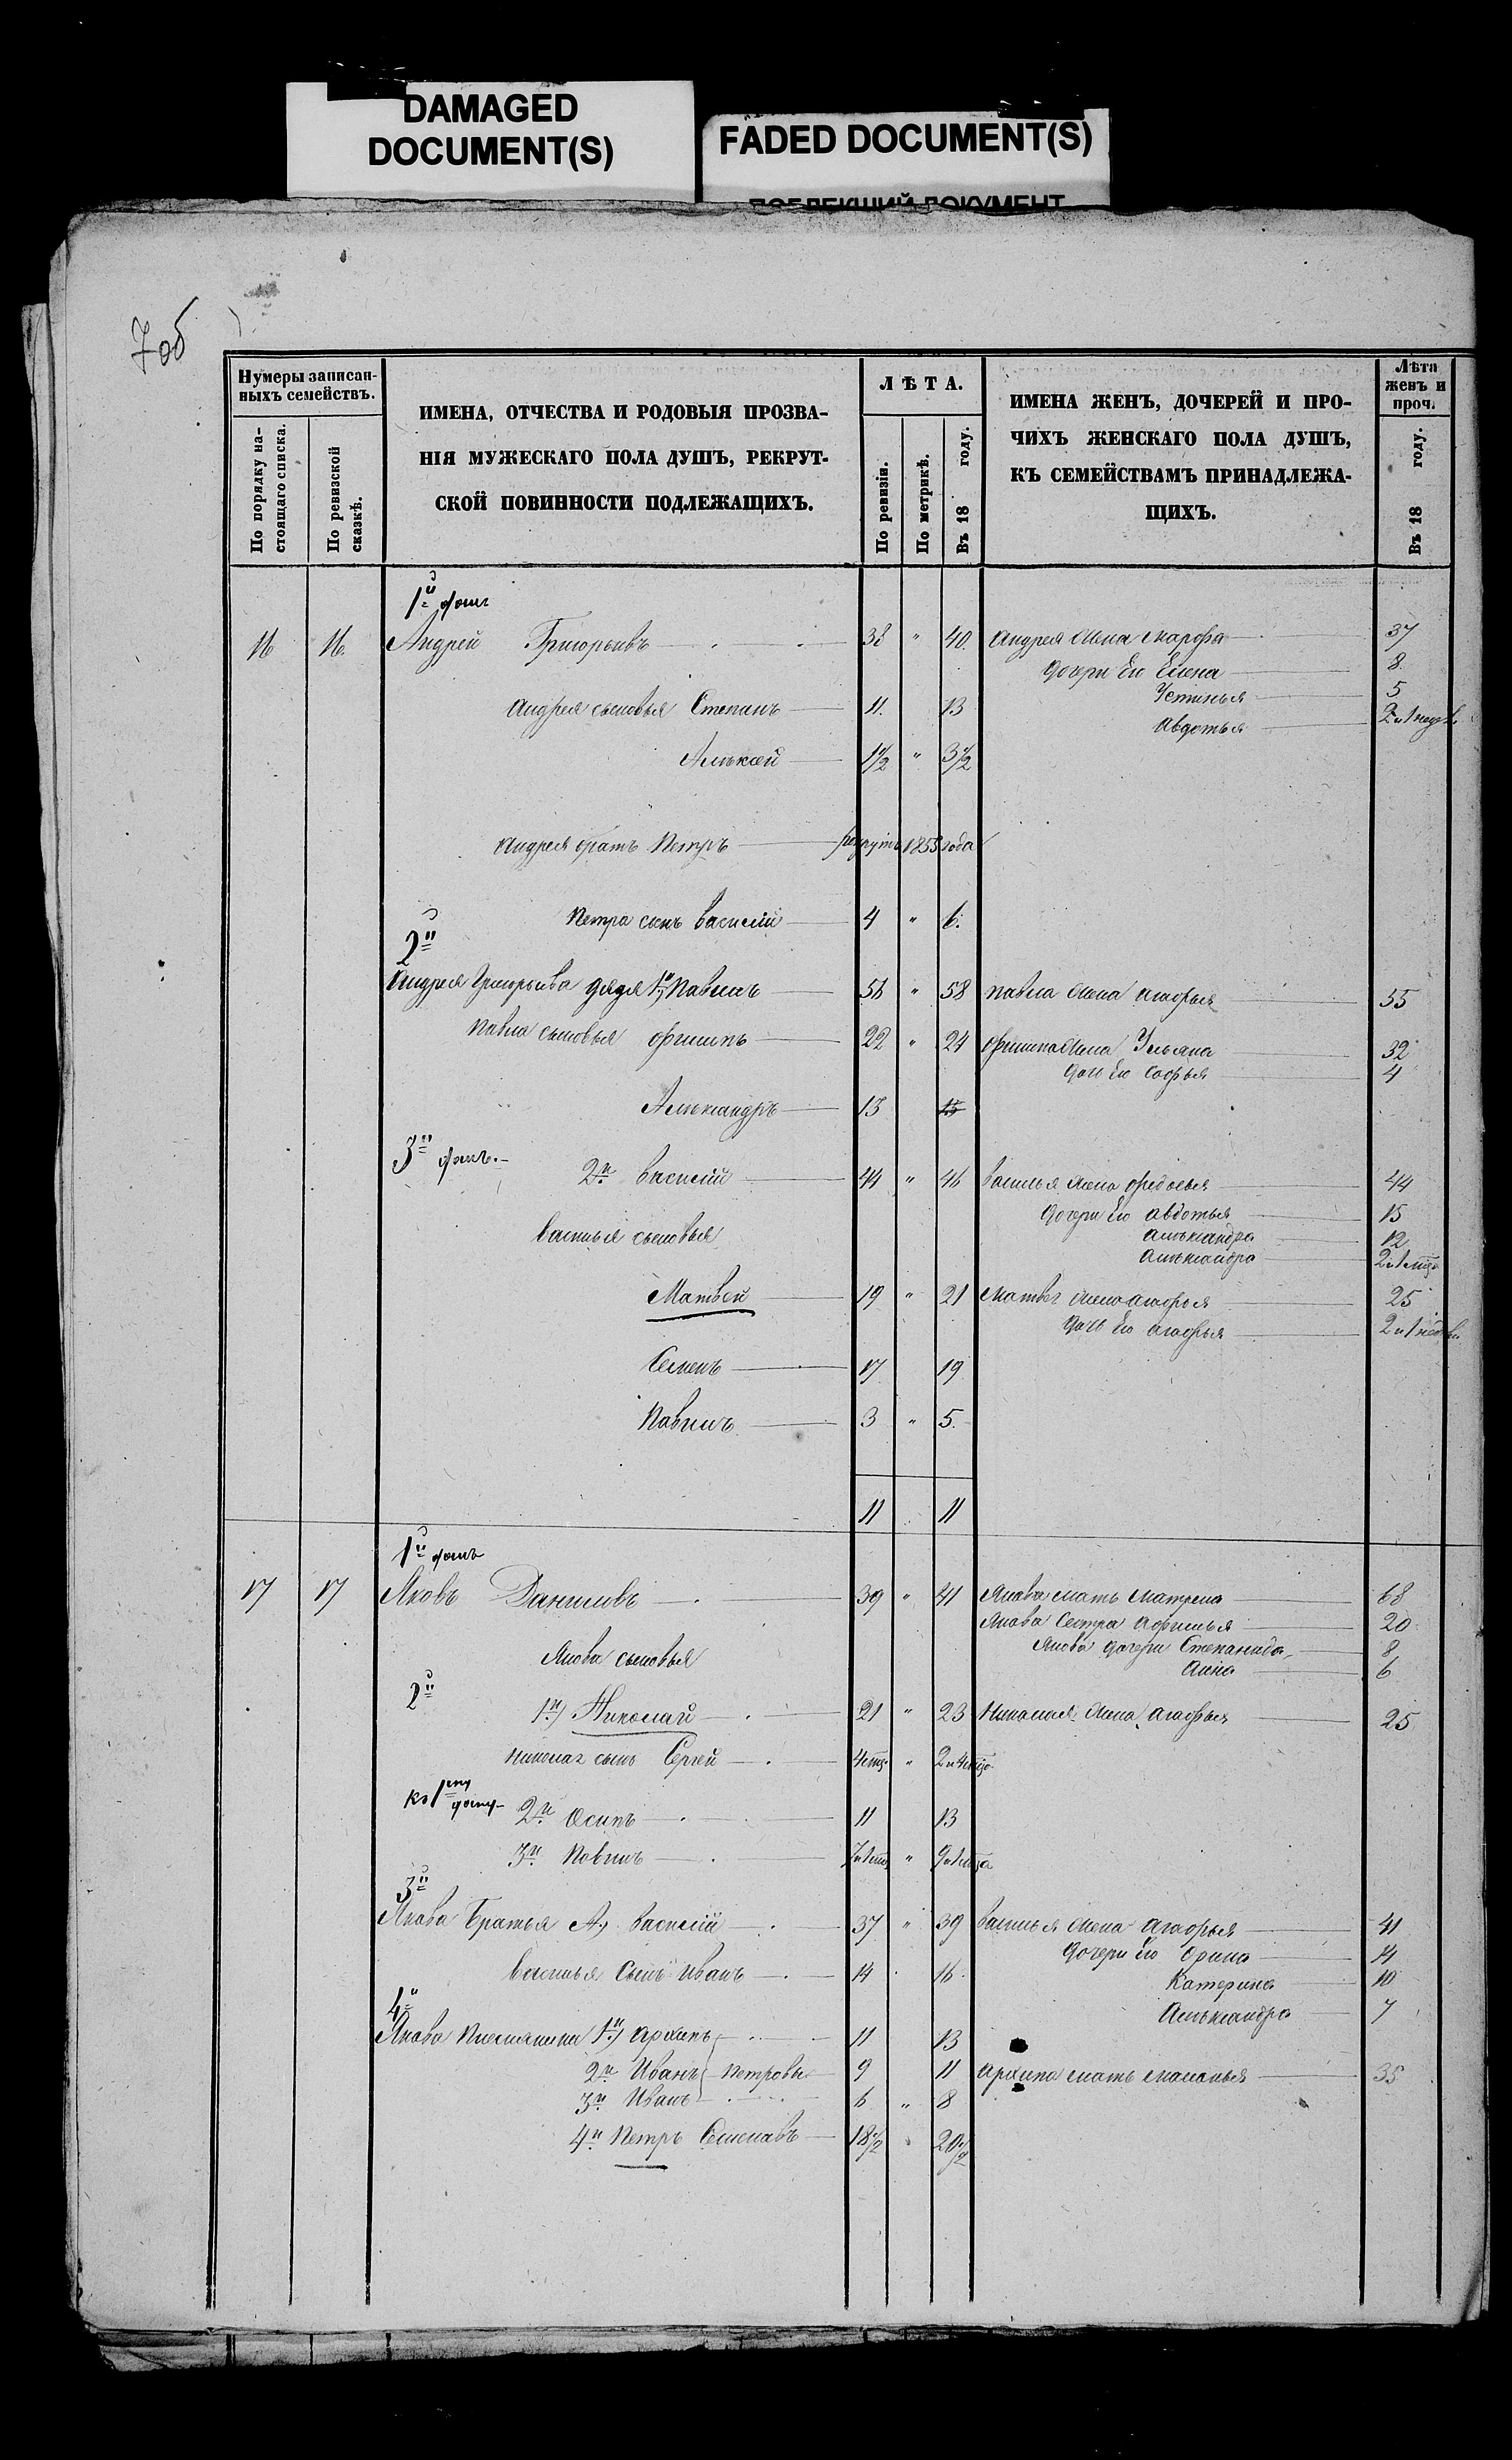 DAMAGED
DOCUMENT(S)
FADED DOCUMENT(S)
7об
Нумеры записан-
ныхъ семействъ.
По порядку на-
стоящаго списка.
По ревизской
сказкѣ.
ИМЕНА, ОТЧЕСТВА И РОДОВЫЯ ПРОЗВА-
НІЯ МУЖЕСКАГО ПОЛА ДУШЪ, РЕКРУТ-
СКОЙ ПОВИННОСТИ ПОДЛЕЖАЩИХЪ.
ЛѢТА.
По ревизіи.
По метрикѣ.
Въ 18 году.
ИМЕНА ЖЕНЪ, ДОЧЕРЕЙ И ПРО-
ЧИХЪ ЖЕНСКАГО ПОЛА ДУШЪ,
КЪ СЕМЕЙСТВАМЪ ПРИНАДЛЕЖА-
ЩИХЪ.
Лѣта
женъ и
проч.
Въ 18 году.
1й
16 16 Андрей Григорьевъ 38 " 40 Андрея жена Марфа 37
Дочери Его Елена 8
Андрея сыновья Степанъ 11 13 Устинья 5
Авдотья
Алексей 1 1/2 " 3 1/2
Андрея братъ Петръ рекрутъ 1853 года
Петра сынъ Василій 4 " 6
2й
Андрея Григорьева дядя 1й Павелъ 56 " 58 Павла жена Агафья 55
Павла сыновья Филипъ 22 " 24 Филипа жена Ульяна 32
Дочь Его Софья 4
Александръ 13 15
3й
2й Василій 44 " 46 Василья жена Федосья 44
Дочери Его Авдотья 15
Василья сыновья Александра 12
Александра
Матвей 19 " 21 Матвея жена Агафья 25
Дочь Его Агафья
Семенъ 17 19
Павелъ 3 " 5
11 11
1й
17 17 Яковъ Даниловъ 39 " 41 Якова мать Матрена 68
Якова Сестра Афимья 20
Якова дочери Степанида 8
Якова сыновья Анна 6
2й
1й Николай 21 " 23 Николая жена Агафья 25
Николая сынъ Сергей
2й Осипъ 11 13
3й Павелъ
3й
Якова Братья Василій 37 " 39 Василья жена Агафья 41
Дочери Его Орина 14
Василья Сынъ Иванъ 14 16 Катерина 10
Александра 7
4й
Якова племянники 1й Архипъ 11 13
2й Иванъ Петровы 9 11 Архипа мать Маланья 35
3й Иванъ 6 " 8
4й Петръ Семеновъ 18 1/2 20 1/2